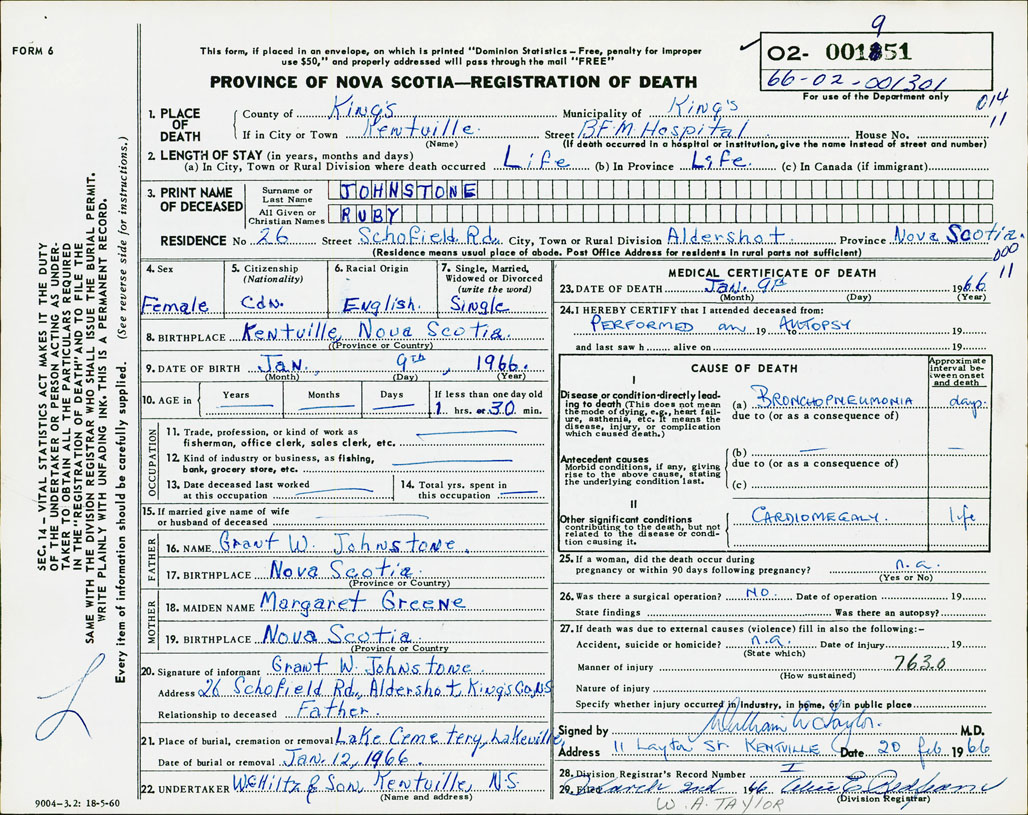 9
FORM 6
This form, if placed in an envelope, on which is printed "Dominion Statistics – Free, penalty for improper
use $50," and properly addressed will pass through the mail "FREE"
PROVINCE OF NOVA SCOTIA—REGISTRATION OF DEATH
02- 001851
66-02-001301
For use of the Department only
014
11
1. PLACE OF DEATH
County of King's Municipality of King's
If in City or Town Kentville Street B.F.M. Hospital House No.
(Name) (If death occurred in a hospital or institution, give the name instead of street and number)
2. LENGTH OF STAY (in years, months and days)
(a) In City, Town or Rural Division where death occurred Life (b) In Province Life. (c) In Canada (if immigrant)
3. PRINT NAME OF DECEASED
Surname or Last Name JOHNSTONE
All Given or Christian Names RUBY
RESIDENCE No 26 Street Schofield Rd. City, Town or Rural Division Aldershot Province Nova Scotia.
(Residence means usual place of abode. Post Office Address for residents in rural parts not sufficient)
000
11
4. Sex
Female
5. Citizenship
(Nationality)
Cdn.
6. Racial Origin
English.
7. Single, Married,
Widowed or Divorced
(write the word)
Single
8. BIRTHPLACE Kentville, Nova Scotia.
(Province or Country)
9. DATE OF BIRTH Jan. 9th, 1966.
(Month) (Day) (Year)
10. AGE in Years Months Days If less than one day old
1 hrs. or 30 min.
OCCUPATION
11. Trade, profession, or kind of work as
fisherman, office clerk, sales clerk, etc.
12. Kind of industry or business, as fishing,
bank, grocery store, etc.
13. Date deceased last worked
at this occupation
14. Total yrs. spent in
this occupation
15. If married give name of wife
or husband of deceased
FATHER
16. NAME Grant W. Johnstone.
17. BIRTHPLACE Nova Scotia.
(Province or Country)
MOTHER
18. MAIDEN NAME Margaret Greene
19. BIRTHPLACE Nova Scotia
(Province or Country
20. Signature of informant Grant W. Johnstone.
Address 26 Schofield Rd., Aldershot, King's Co. N.S
Relationship to deceased Father.
21. Place of burial, cremation or removal Lake Cemetery, Lakeville,
Date of burial or removal Jan. 12, 1966.
22. UNDERTAKER W.C. Hiltz & Son, Kentville, N.S.
(Name and address)
9004-3.2: 18-5-60
MEDICAL CERTIFICATE OF DEATH
23. DATE OF DEATH Jan. 9th 1966
(Month) (Day) (Year)
24. I HEREBY CERTIFY that I attended deceased from:
PERFORMED an 19 to AUTOPSY 19
and last saw h alive on 19
CAUSE OF DEATH
Approximate
interval be-
tween onset
and death
I
Disease or condition directly lead-
ing to death (This does not mean
the mode of dying, e.g., heart fail-
ure, asthenia, etc. It means the
disease, injury, or complication
which caused death.)
(a) BRONCHOPNEUMONIA days.
due to (or as a consequence of)
Antecedent causes
Morbid conditions, if any, giving
rise to the above cause, stating
the underlying condition last.
(b) —
due to (or as a consequence of)
(c)
II
Other significant conditions
contributing to the death, but not
related to the disease or condi-
tion causing it.
CARDIOMEGALY. life
25. If a woman, did the death occur during
pregnancy or within 90 days following pregnancy? n.a.
(Yes or No)
26. Was there a surgical operation? NO. Date of operation 19
State findings Was there an autopsy?
27. If death was due to external causes (violence) fill in also the following:–
Accident, suicide or homicide? n.a. Date of injury 19
(State which)
Manner of injury 763.0
(How sustained)
Nature of injury
Specify whether injury occurred in Industry, in home, or in public place
Signed by William A Taylor. M.D.
Address 11 Layton St KENTVILLE Date 20 feb 1966
28. Division Registrar's Record Number I
29. Filed March 2nd 1966
(Division Registrar)
W. A. TAYLOR
SEC. 14 – VITAL STATISTICS ACT MAKES IT THE DUTY
OF THE UNDERTAKER OR PERSON ACTING AS UNDER-
TAKER TO OBTAIN ALL THE PARTICULARS REQUIRED
IN THE "REGISTRATION OF DEATH" AND TO FILE THE
SAME WITH THE DIVISION REGISTRAR WHO SHALL ISSUE THE BURIAL PERMIT.
WRITE PLAINLY WITH UNFADING INK. THIS IS A PERMANENT RECORD.
Every item of information should be carefully supplied. (See reverse side for instructions.)